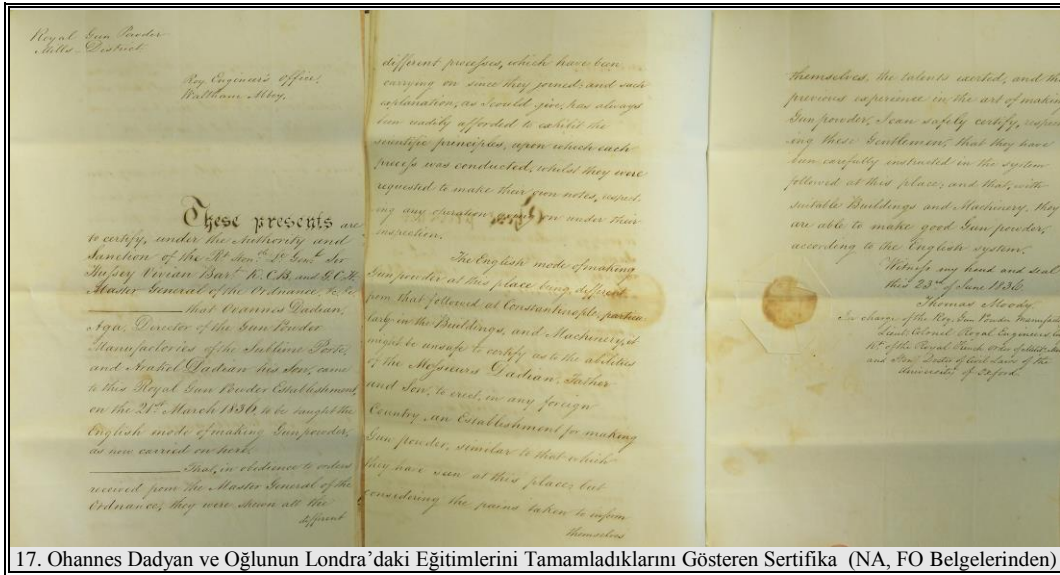 Royal Gun Powder
Mills District
Roy. Engineers Office,
Waltham Abbey.
These presents are
to certify, under the Authority and
Sanction of the Rt. Honble. Lt. Genl. Sir
Hussey Vivian Bart. K.C.B. and G.C.H.
Master General of the Ordnance, &c. &c.
that Ovannis Dadian,
Aga, Director of the Gun Powder
Manufactories of the Sublime Porte,
and Arakel Dadian his Son, came
to this Royal Gun Powder Establishment,
on the 21st. March 1836, to be taught the
English mode of making Gunpowder,
as now carried on here.
That, in obedience to orders
received from the Master General of the
Ordnance, they were shewn all the
different
different processes, which have been
carrying on since they joined; and such
explanation, as I could give, has always
been readily afforded to exhibit the
scientific principles, upon which each
process was conducted, whilst they were
requested to make their own notes, respect-
ing any operation, under their
inspection.
The English mode of making
Gunpowder at this place being different
from that followed at Constantinople, particu-
larly in the Buildings, and Machinery, it
might be unsafe to certify as to the abilities
of the Messieurs Dadian, Father
and Son, to erect, in any foreign
Country, an Establishment for making
Gun powder, similar to that which
they have seen at this place; but
considering the pains taken to inform
themselves
themselves, the talents exerted, and the
previous experience in the art of making
Gunpowder, I can safely certify, respect-
ing these Gentlemen, that they have
been carefully instructed in the system
followed at this place; and that, with
suitable Buildings and Machinery, they
are able to make good Gun powder,
according to the English system.
Witness my hand and seal
this 23rd of June 1836
Thomas Moody
In charge of the Roy. Gun Powder Manufac
Lieut. Colonel Royal Engineers,
Kt. of the Royal French Order of
and Doctor of Civil Laws of the
University of Oxford.
17. Ohannes Dadyan ve Oğlunun Londra’daki Eğitimlerini Tamamladıklarını Gösteren Sertifika (NA, FO Belgelerinden)